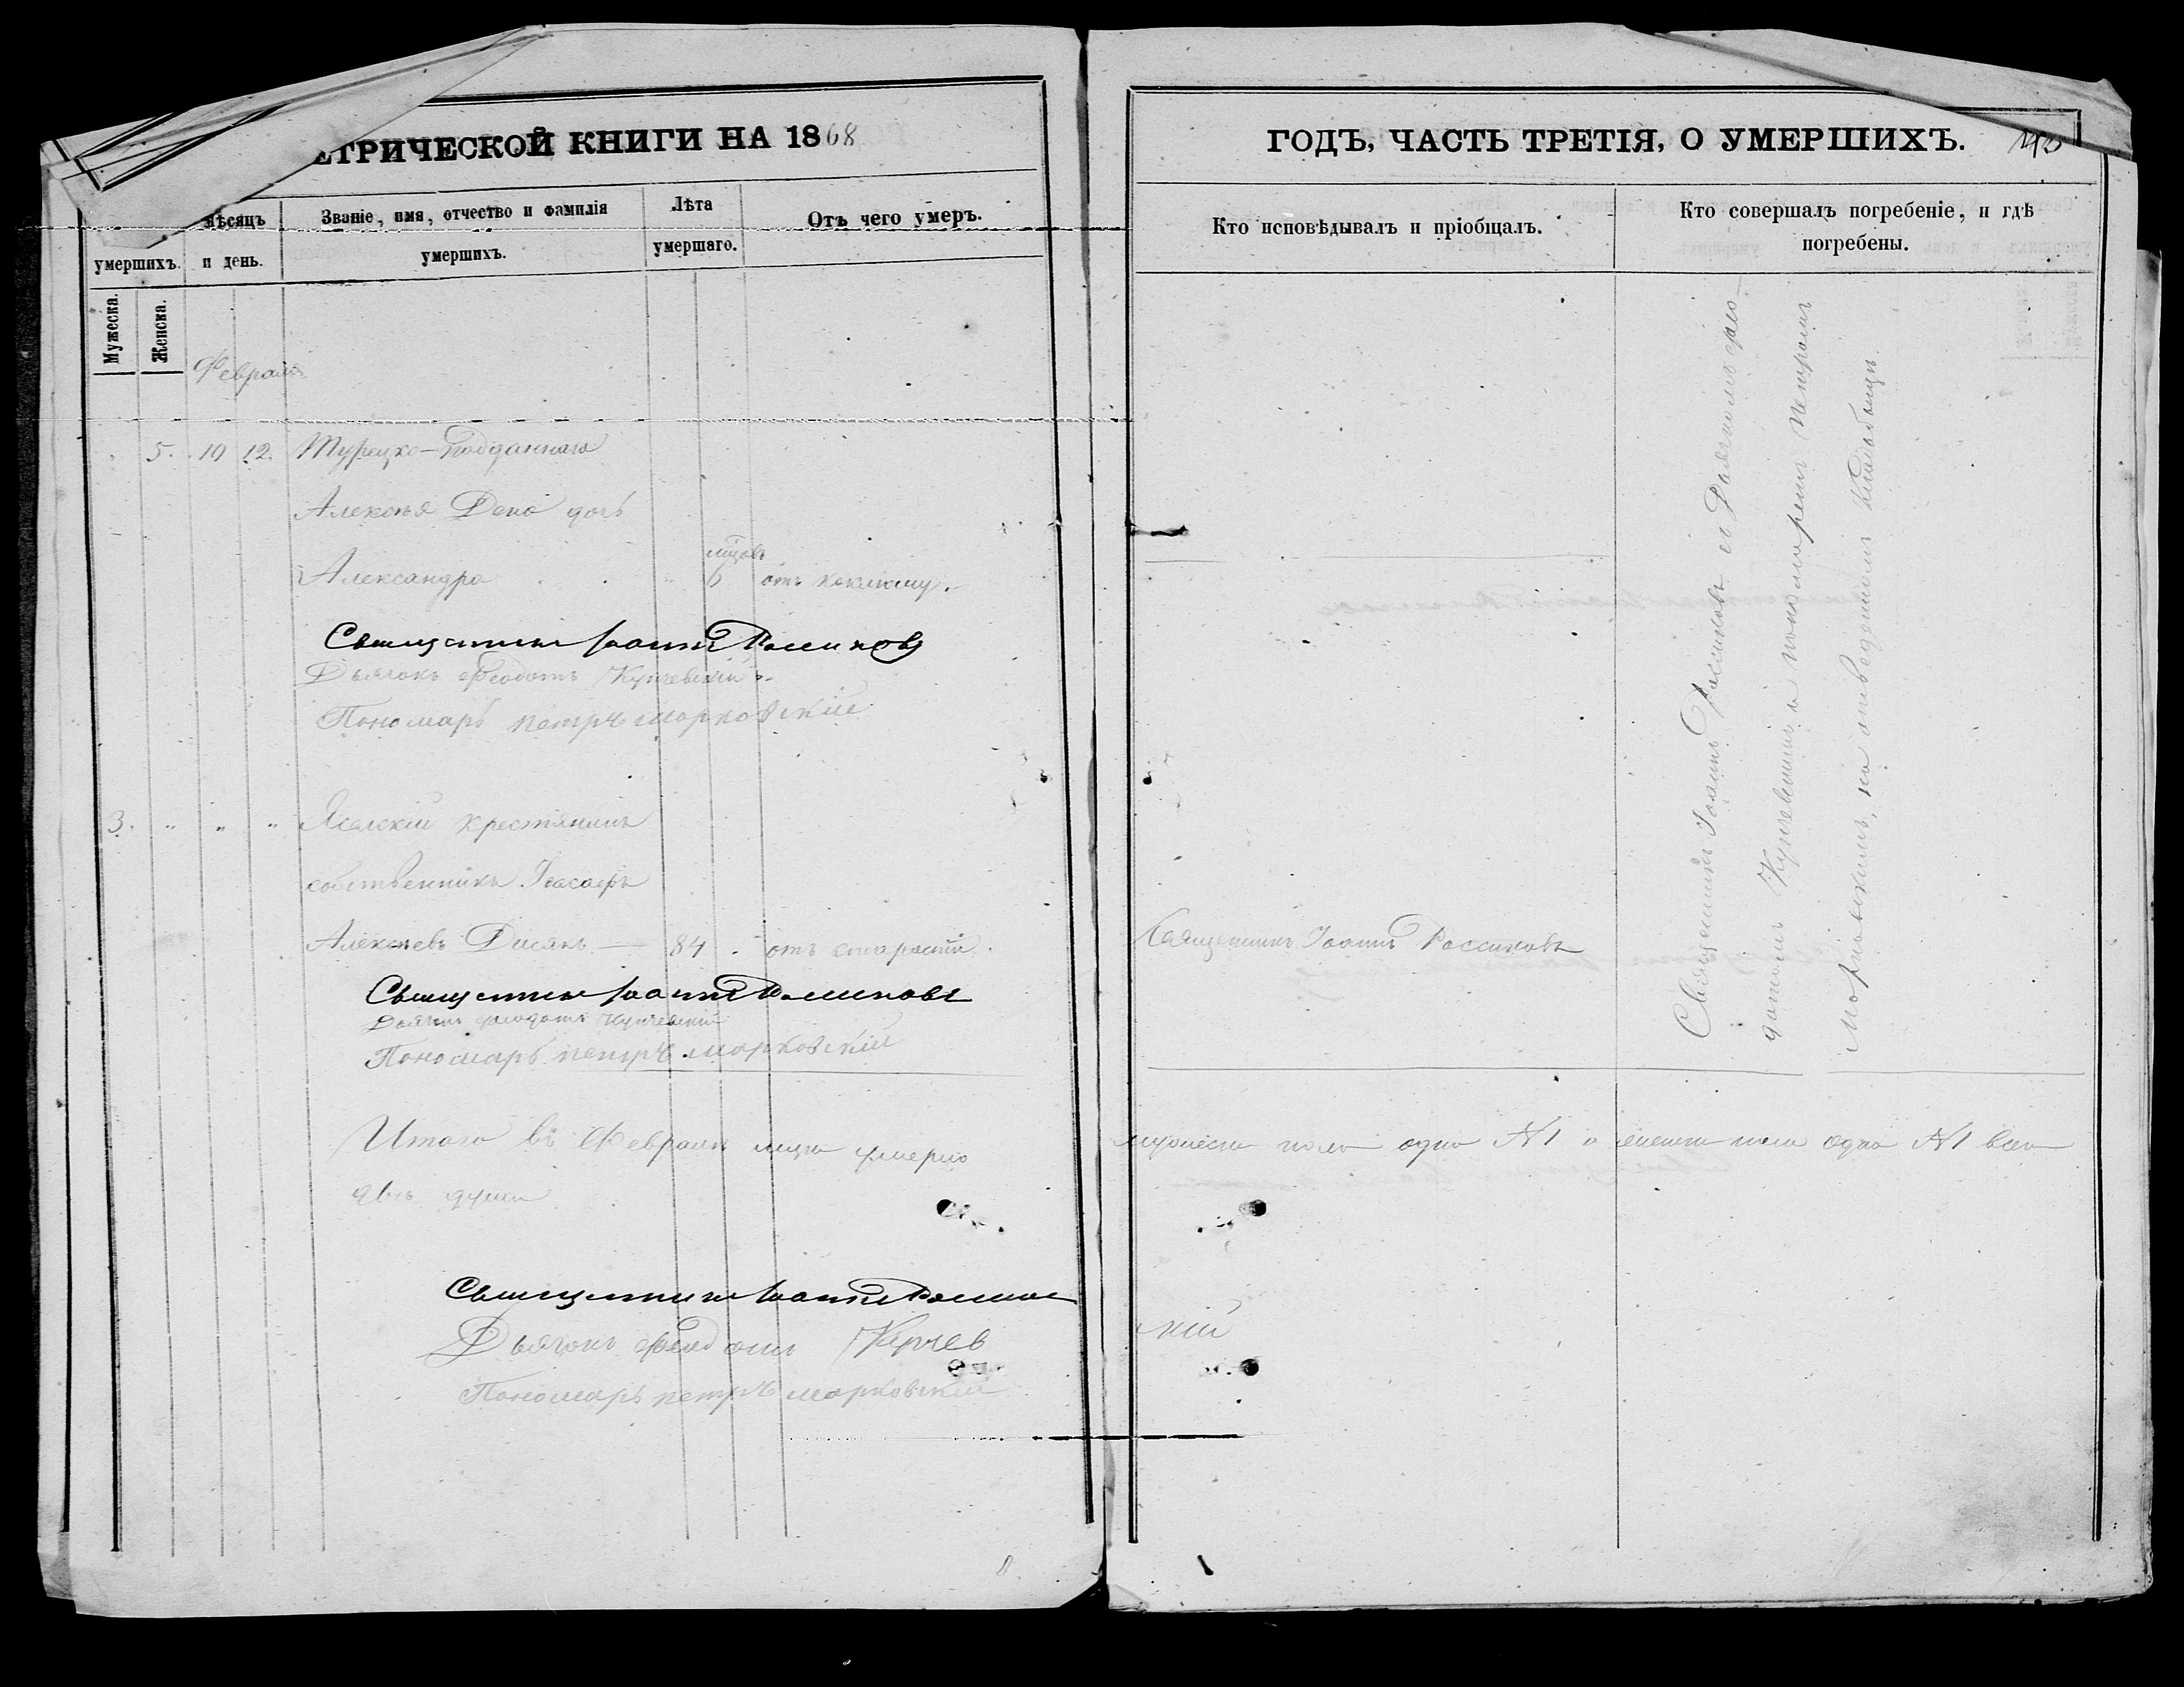 ЕТРИЧЕСКОЙ КНИГИ НА 1868
ГОДЪ, ЧАСТЬ ТРЕТІЯ, О УМЕРШИХЪ.
умершихъ.
Мѣсяцъ
и день.
Званіе, имя, отчество и фамилія
умершихъ.
Лѣта
умершаго.
Отъ чего умеръ.
Кто исповѣдывалъ и пріобщалъ.
Кто совершалъ погребеніе, и гдѣ
погребены.
Мужеска.
Женска.
Февраль
5. 10 12. Турецко-подданнаго
Алексѣя Дено дочь
Александра 6 мцовъ отъ коклюшу.
Священникъ Іоаннъ Россиковъ
Дьячокъ Феодотъ Купчевскій
Пономарь петръ марковскій
3. " " " крестянинъ
собственникъ Іоасафъ
Алексѣевъ 84 отъ старости.
Священникъ Іоаннъ Россиковъ
Священникъ Іоаннъ Россиковъ
Дьячокъ Феодотъ Купчевскій
Пономарь петръ марковскій
Священникъ Іоаннъ Россиковъ съ Дьячкомъ Фео-
дотомъ Купчевскимъ и пономаремъ Петромъ
Марковскимъ, на отведенномъ кладбищѣ
Итого въ Февралѣ мцѣ умерло мужеска пола одно №1 и женска пола одно №1 всего
двѣ души
Священникъ Іоаннъ
Дьячокъ Феодотъ Купчевскій
Пономарь петръ марковскій